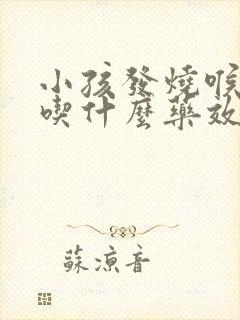 小孩發燒喉
喫什麼藥效
蘇涼音